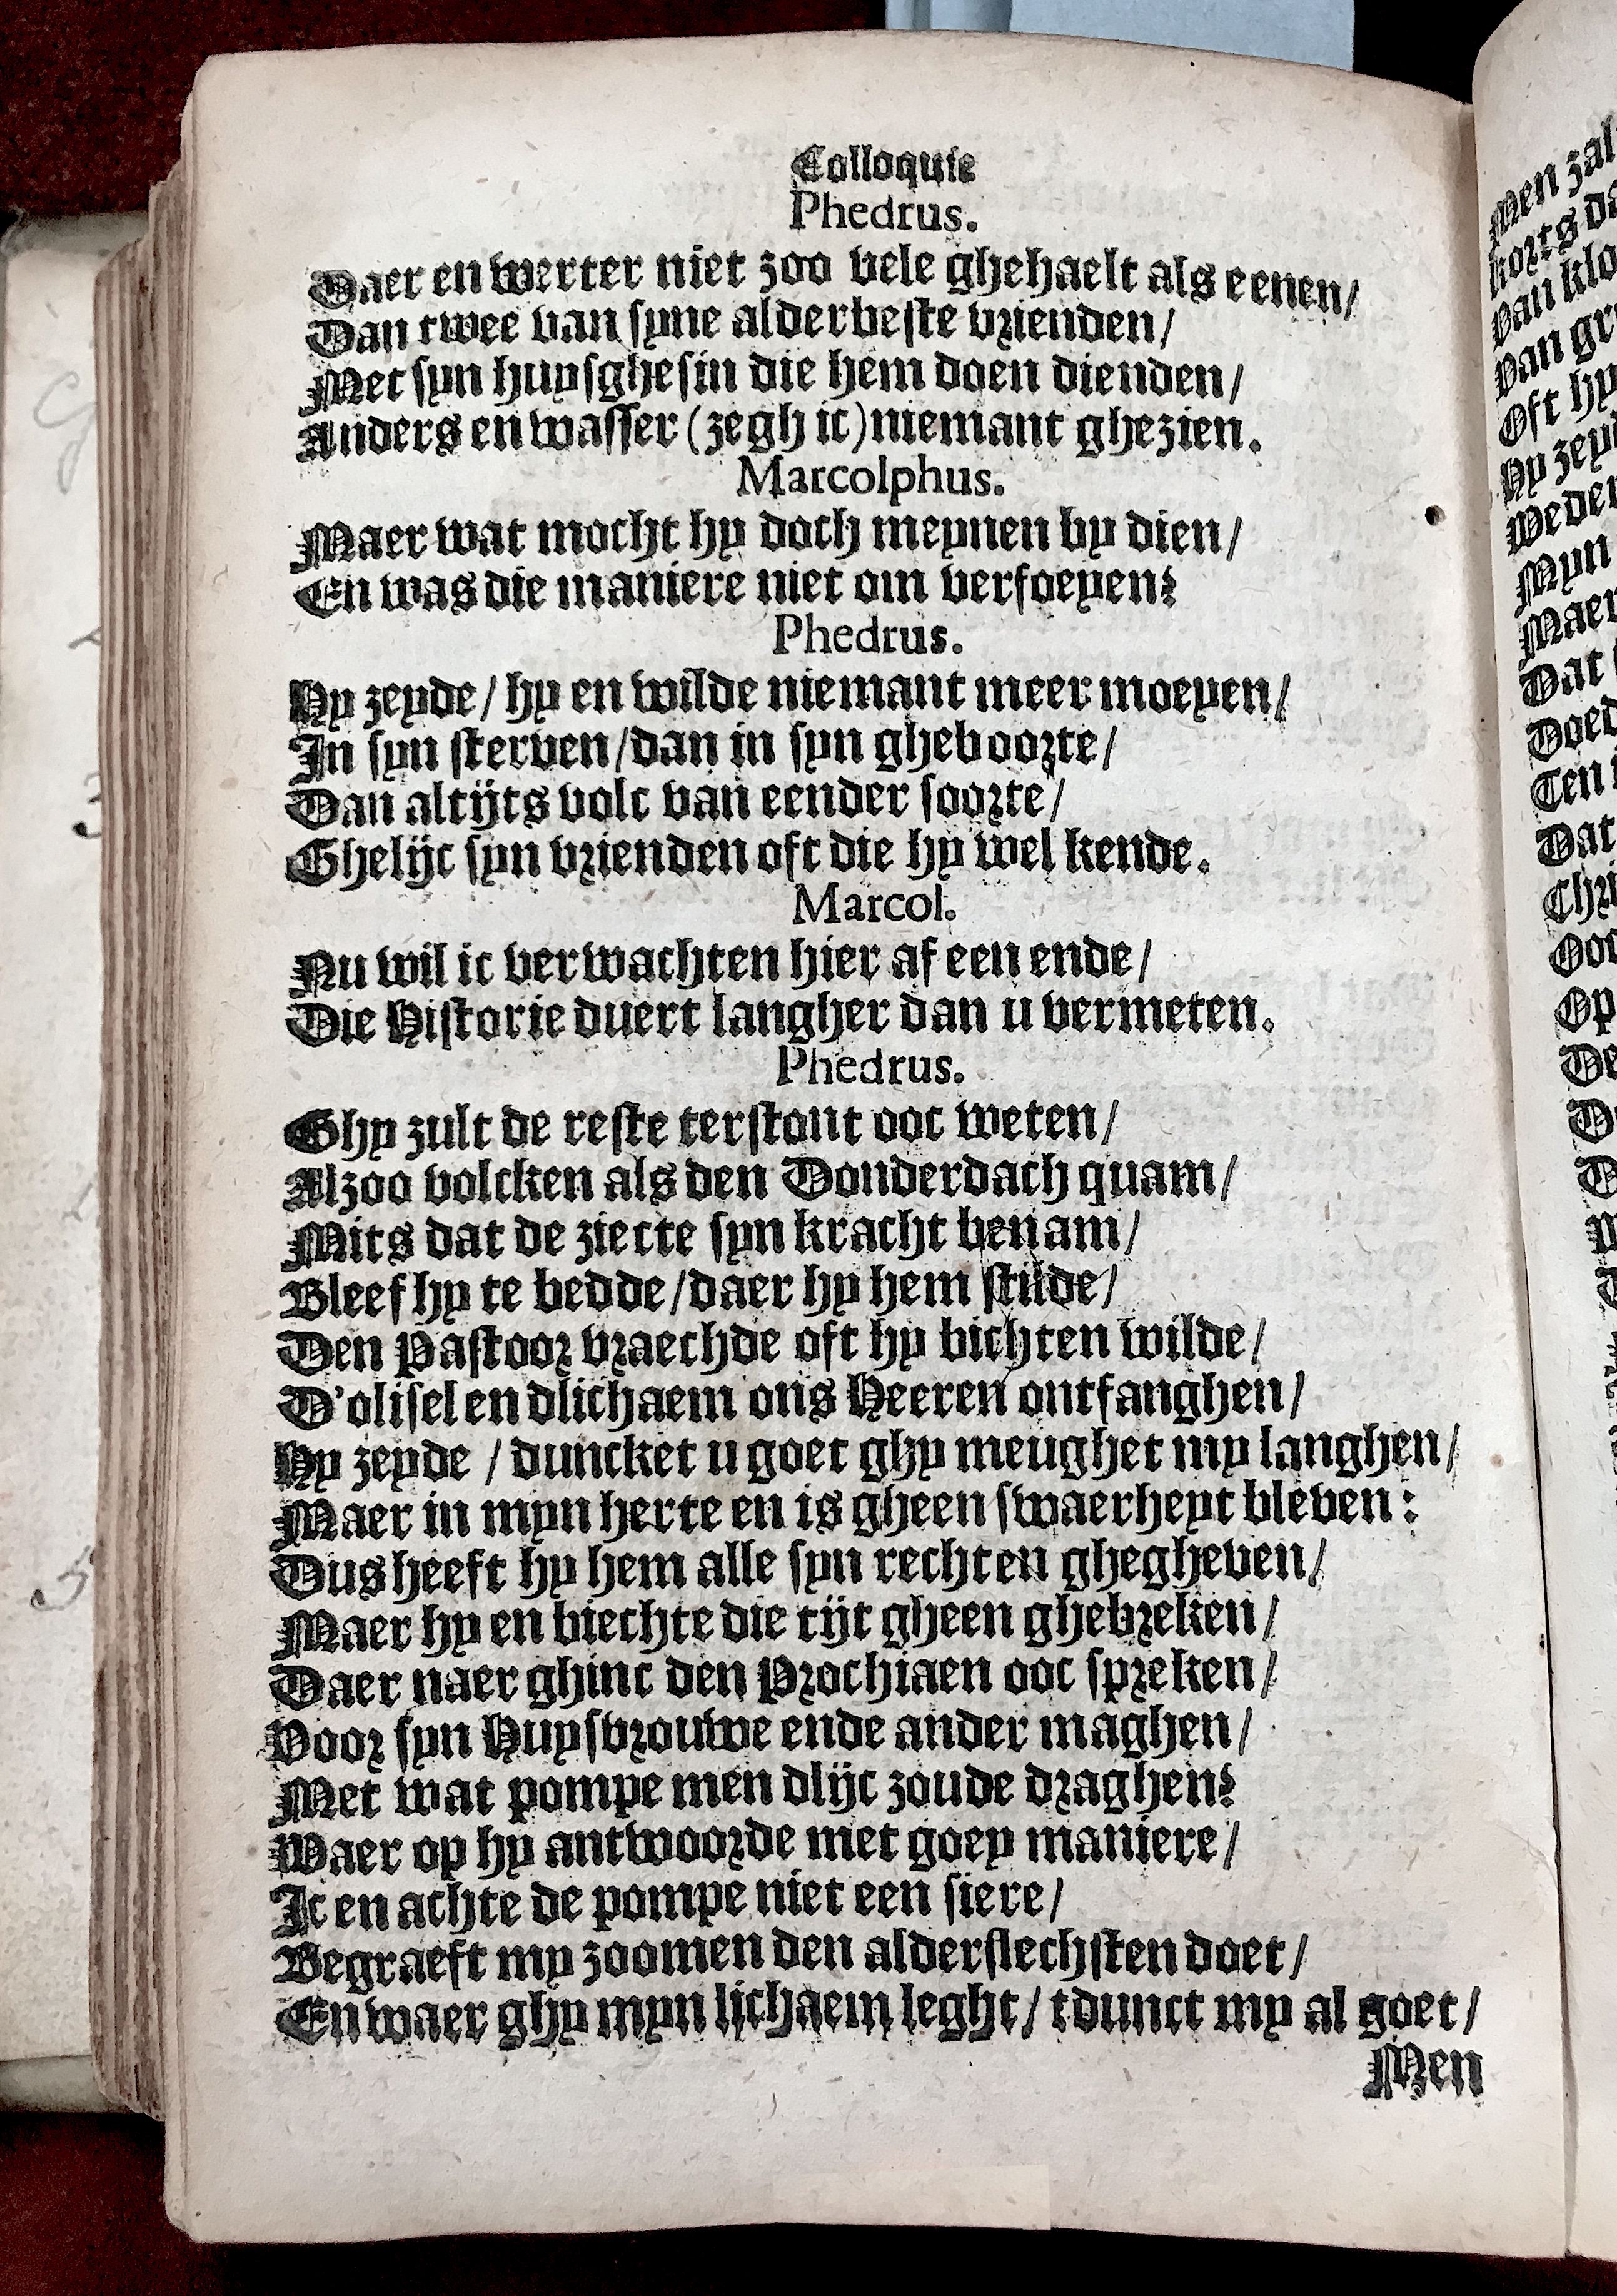 Colloquie
Phedrus.
Daer en werter niet zoo vele ghehaelt als eenen/
Dan twee van syne alderbeste vrienden/
Met syn huysghesin die hem doen dienden/
Anders en wasser (zegh ic) niemant ghezien.
Marcolphus.
Maer wat mocht hy doch meynen by dien/
En was die maniere niet om verfoeyen?
Phedrus.
Hy zeyde/ hy en wilde niemant meer moeyen/
In syn sterven/dan in syn gheboorte/
Dan altijts volc van eender soorte/
Ghelijc syn vrienden oft die hy wel kende.
Marcol.
Nu wil ic verwachten hier af een ende/
Die Historie duert langher dan u vermeten.
Phedrus.
Ghy zult de reste terstont ooc weten/
Alzoo volcken als den Donderdach quam/
Mits dat de ziecte syn kracht benam/
Bleef hy te bedde/daer hy hem stilde/
Den Pastoor vraechde oft hy bichten wilde/
D'olisel en dlichaem ons Heeren ontfanghen/
Hy zeyde / duncket u goet ghy meughet my langhen/
Maer in myn herte en is gheen swaerheyt bleven:
Dus heeft hy hem alle syn rechten ghegheven/
Maer hy en biechte die tijt gheen ghebreken/
Daer naer ghinc den Prochiaen ooc spreken/
Voor syn Huysvrouwe ende ander maghen/
Met wat pompe men dlijc zoude draghen?
Waer op hy antwoorde met goey maniere/
Ic en achte de pompe niet een siere/
Begraeft my zoomen den alderslechsten doet/
En waer ghy myn lichaem leght/ tdunct my al goet/
Men
Men zal
korts da
Van klo
Van gr
Oft hy
Hy zey
Weder
Myn
Maer
Dat
Doed
Ten
Dat
Chri
Ooc
Op
De